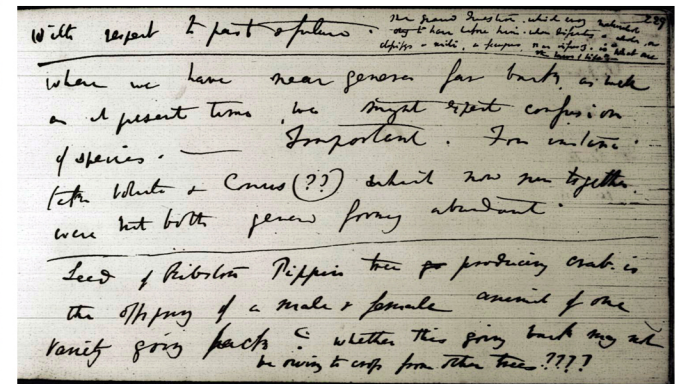 With respect to past & future. The grand Question, which every naturalist 229
ought to have before him, when dissecting a whale, or
classifying a mite, a fungus, or an infusorian. is "What are
the laws of life"
where we have near genera far back, as well
as at present time, we might expect confusion
of species. — Important. For instance
take Voluta & Conus (??) which now run together.
were not both genera formerly abundant.
Seed of Ribston Pippin tree go producing crab. is
the offspring of a male & female animal of one
variety going back ¿ whether this going back may not
be owing to cross from other trees????